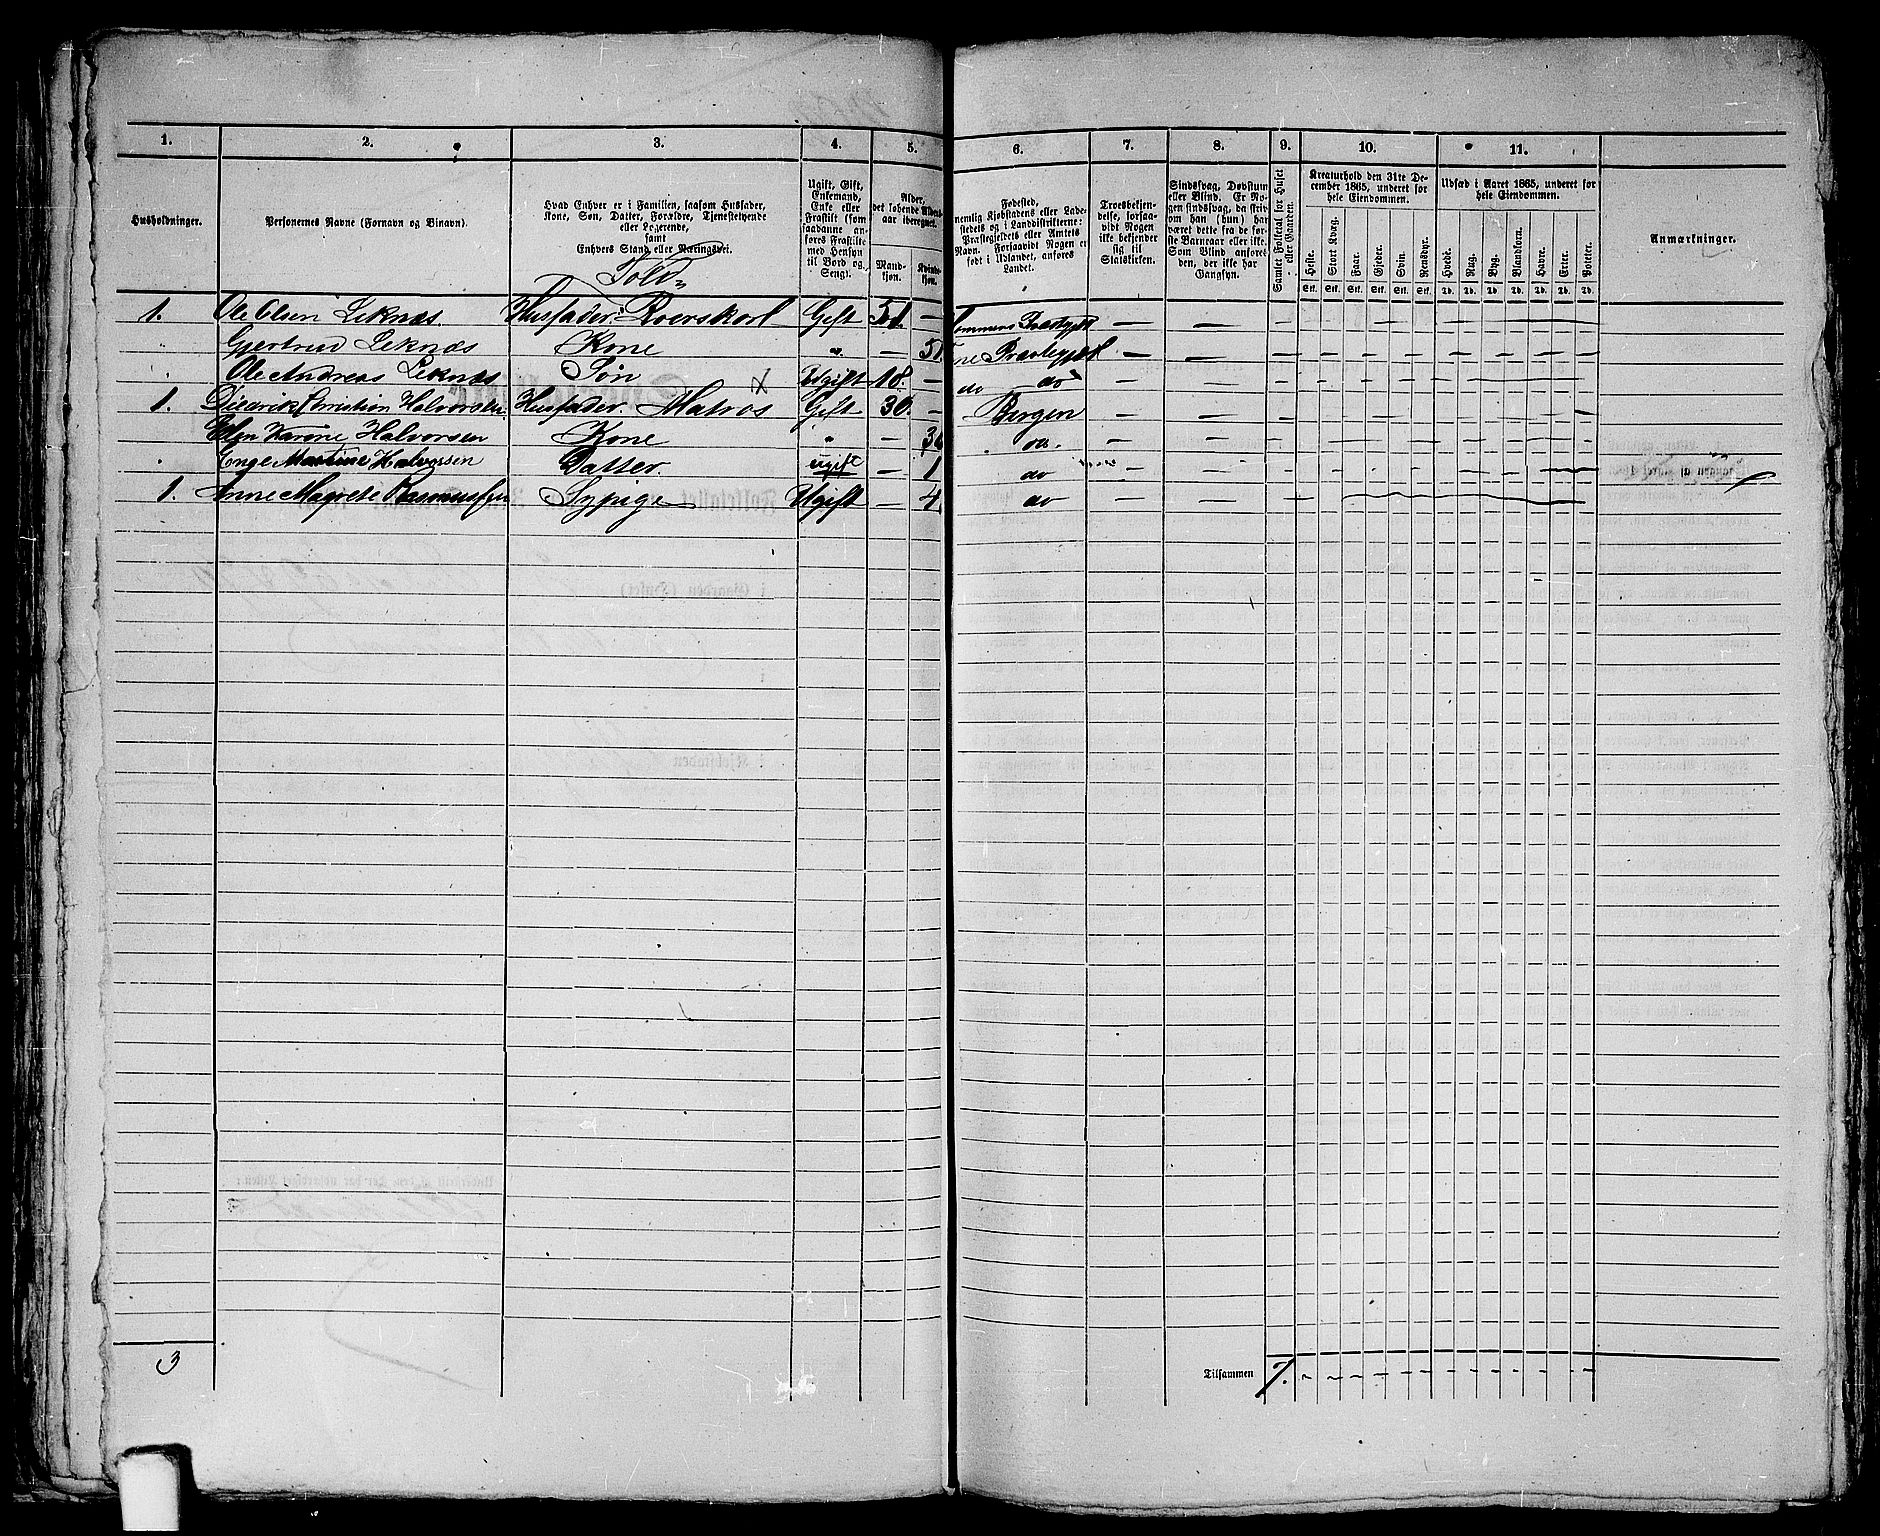 1. 2. 3. 4. 5. 6. 7. 8. 9. 10. 11.
Husholdninger.
Personernes Navne (Fornavn og Binavn).
Hvad Enhver er i Familien, saasom Husfader,
Kone, Søn, Datter, Forældre, Tjenestetyende
eller Logerende,
samt
Enhvers Stand eller Næringsvei.
Ugift, Gift,
Enkemand,
Enke eller
Fraskilt (som
saadanne an-
føres Fraskilte
med Hensyn
til Bord og
Seng).
Alder,
det løbende Alders-
aar iberegnet.
Mand-
kjøn.
Kvinde-
kjøn.
Fødested,
nemlig Kjøbstadens eller Lade-
stedets og i Landdistrikterne:
Præstegjeldets eller Amtets
Navn. Forsaavidt Nogen er
født i Udlandet, anføres
Landet.
Troesbekjen-
delse, forsaa-
vidt Nogen
ikke bekjender
sig til
Statskirken.
Sindssvag, Døvstum
eller Blind. Er No-
gen sindssvag, da skriv
om han (hun) har
været dette fra de før-
ste Barneaar eller ikke.
Som Blind anføres
den, der ikke har
Gangsyn.
Samlet Folketal for Huset
eller Gaarden.
Kreaturhold den 31te De-
cember 1865, underet for
hele Eiendommen.
Heste. Stort Kvæg. Faar. Gjeder. Svin. Rensdyr.
Stk. Stk. Stk. Stk. Stk. Stk.
Udsæd i Aaret 1865, underet for
hele Eiendommen.
Hvede. Rug. Byg. Blandkorn. Havre. Erter. Poteter.
Td. Td. Td. Td. Td. Td. Td.
Anmærkninger.
Told=
1. Ole Olsen Leknæs. Husfader: Roerskarl Gift 51. — Præstegjeld — —
" Gjertrud Leknæs Kone " — 51 Præstegjeld — —
" Ole Andreas Leknæs Søn Ugift 18. — do do — —
1. Didrik Christian Halvorsen Husfader. Matros X Gift 30. — Bergen — —
Elen Karine Halvorsen Kone " — 3 do — —
Enge Martine Halvorsen Datter. ugift — 1 do — —
1. Anne Magrete Rasmussen Sypige Ugift — 4 do — —
3
Tilsammen 7.